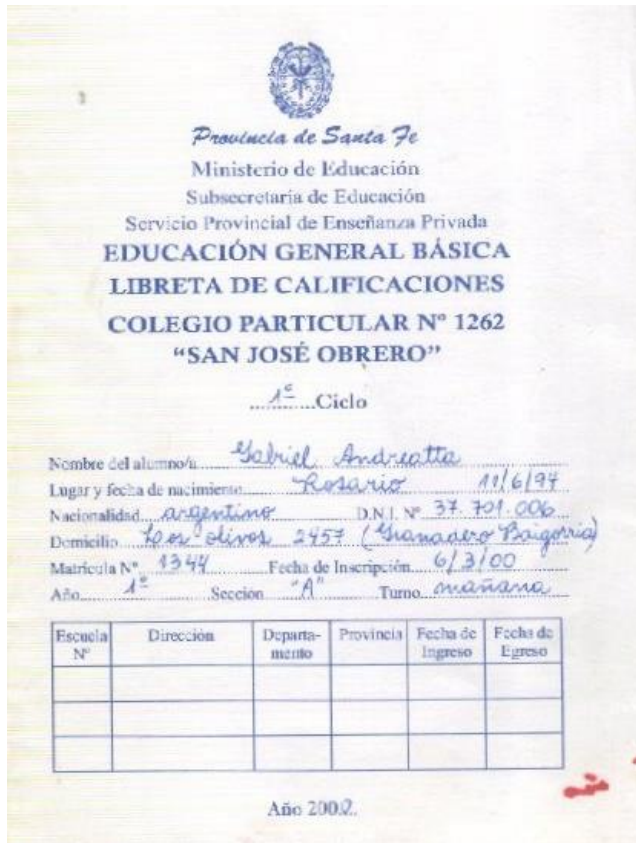 Provincia de Santa Fe
Ministerio de Educación
Subsecretaría de Educación
Servicio Provincial de Enseñanza Privada
EDUCACIÓN GENERAL BÁSICA
LIBRETA DE CALIFICACIONES
COLEGIO PARTICULAR Nº 1262
“SAN JOSÉ OBRERO”
1º Ciclo
Nombre del alumno/a Gabriel Andreatta
Lugar y fecha de nacimiento Rosario 11/6/94
Nacionalidad argentino D.N.I. Nº 37.701.006
Domicilio Los olivos 2457 (Granadero Baigorria)
Matrícula Nº 1344 Fecha de Inscripción 6/3/00
Año 1º Sección "A" Turno mañana
Escuela Nº Dirección Departa-mento Provincia Fecha de Ingreso Fecha de Egreso
Año 200